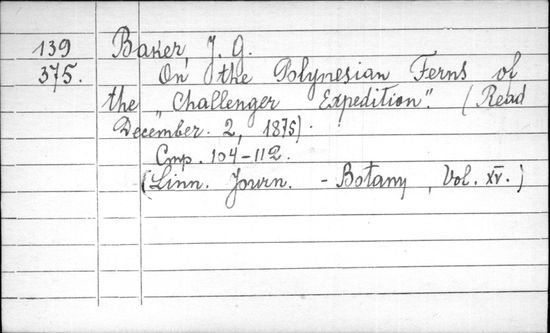 139 Baker, J. G.
375. On the Polynesian Ferns of
the „Challenger Expedition". (Read
December. 2, 1875).
Cmp. 104-112.
(Linn. Journ. - Botany, Vol. XV.)